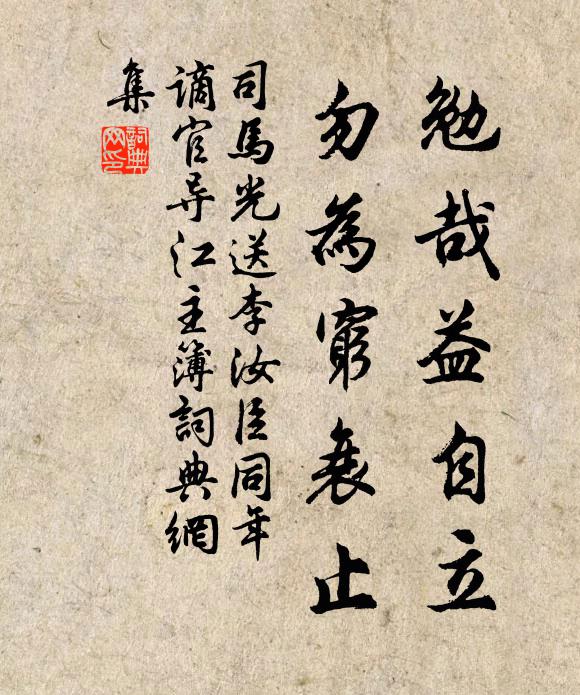 勉哉益自立
勿為窮衰止
司馬光送李汝臣同年
謫官导江主簿詞典網
集
詞典
网印